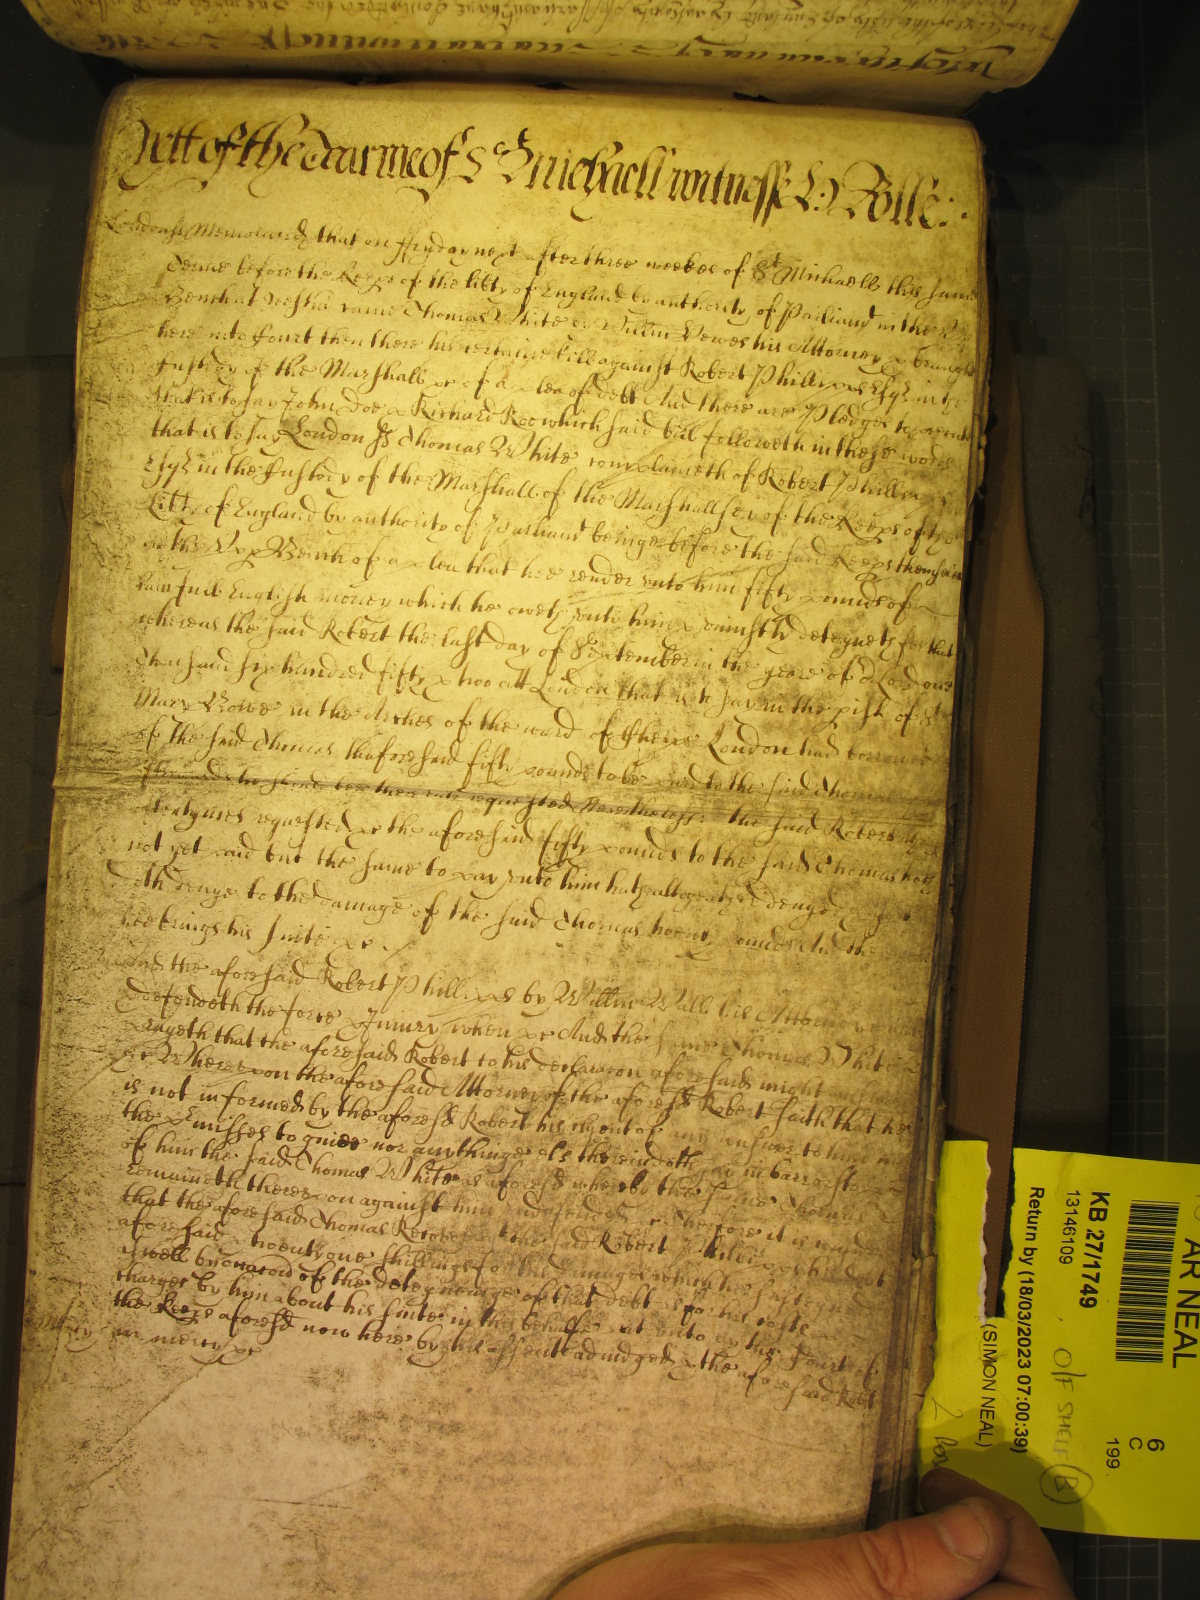 Yett of the Tearme of St Michaell witnesse H: Rolle:
London ss Memorand that on Fryday next after three weekes of St Michaell this same
Terme before the Keeps of the libty of England by authority of Parliamt in the
Bench at Westmr came Thomas White by Willm Yewes his Attorney & brought
here into Court then there his certaine bill against Robert Phillipps Esqr in the
Custody of the Marshall &c of a plea of debt And there are Pledges to prosecute
that is to say John Doe & Richard Roe which said bill followeth in these words
that is to say London ss Thomas White complaineth of Robert Phillipps
Esqr in the Custody of the Marshall of the Marshallsey of the Keeps of the
Libty of England by authority of Parliamt beinge before the said Keeps themselves
in the Upp Bench of a plea that hee render unto him fifty pounds of
lawfull English money which he oweth unto him & uniustly deteyneth for that
whereas the said Robert the last day of September in the yeare of or Lord one
thousand six hundred fifty & two att London that is to say in the pish of St
Mary Bowe in the Arches of the ward of Cheape London had borrowed
of the said Thomas thaforesaid fifty pounds to be paid to the said Thomas
when hee should bee thereunto requested Neverthelesse the said Robert
oftentymes requested &c the aforesaid fifty pounds to the said Thomas hath
not yet paid but the same to pay unto him hath altogether denyed
doth denye to the damage of the said Thomas twenty pounds And
hee brings his suite &c
And the aforesaid Robert Phillipps by Willm Wall his Attorney
defendeth the force & Iniury when &c And the same Thomas White
prayeth that the aforesaid Robert to his declaracon aforesaid might
&c Whereupon the aforesaid Attorney of the aforesd Robert saith that he
is not informed by the aforesd Robert his clyent of any answer to him in
the pmisses to giue nor any thinge els therein doth say in barr or stopp
of him the said Thomas White as aforesd whereby the same Thomas
remaineth thereupon against him undefended &c Therefore it is
that the aforesaid Thomas Recover the said Robert Phillipps his debt
aforesaid & twenty one shillings for his damages which he
aswell by occasion of the deteyneinge of that debt as for his costs
charges by him about his suite in this behalfe put unto by the Court of
the Keeps aforesd now here by his assent adiudged & the aforesaid Robt
mercy in mercy &c
AR NEAL
KB 27/1749
13146109
Return by (18/03/2023 07:00:39)
(SIMON NEAL)
6
C
199
O/F SHELF B